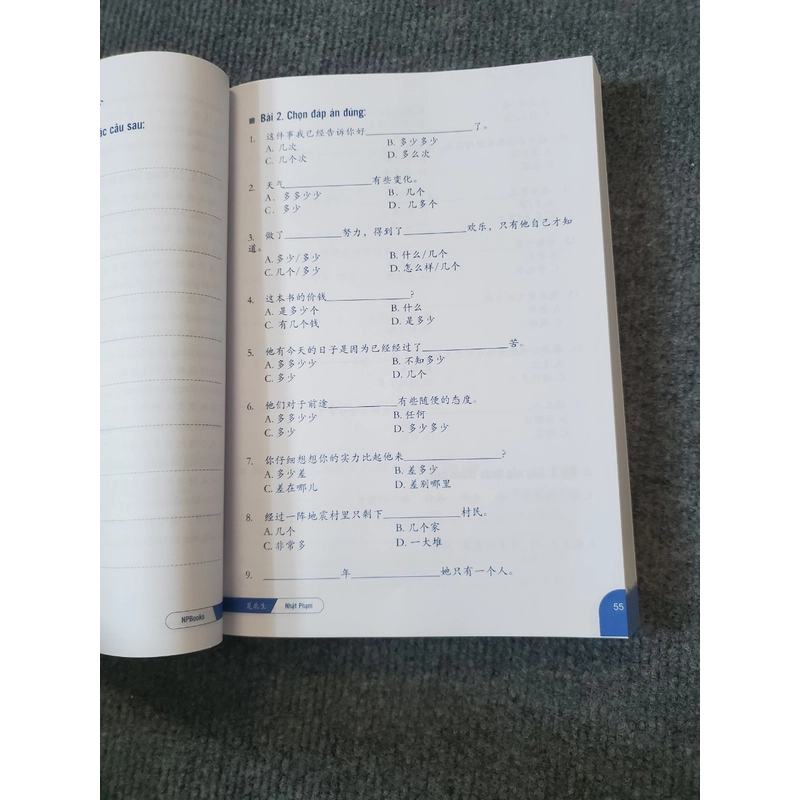 ác câu sau:
NPBooks
Bài 2. Chọn đáp án đúng:
1. 这件事我已经告诉你好____________了。
A. 几次 B. 多少多少
C. 几个次 D. 多么次
2. 天气____________有些变化。
A. 多多少少 B. 几个
C. 多少 D. 几多个
3. 做了________努力，得到了________欢乐，只有他自己才知
道。
A. 多少/多少 B. 什么/几个
C. 几个/多少 D. 怎么样/几个
4. 这本书的价钱____________?
A. 是多少个 B. 什么
C. 有几个钱 D. 是多少
5. 他有今天的日子是因为已经经过了____________苦。
A. 多多少少 B. 不知多少
C. 多少 D. 几个
6. 他们对于前途__________有些随便的态度。
A. 多多少少 B. 任何
C. 多少 D. 多少多少
7. 你仔细想想你的实力比起他来____________?
A. 多少差 B. 差多少
C. 差在哪儿 D. 差别哪里
8. 经过一阵地震村里只剩下__________村民。
A. 几个 B. 几个家
C. 非常多 D. 一大堆
9. __________年__________她只有一个人。
Nhật Phạm
55